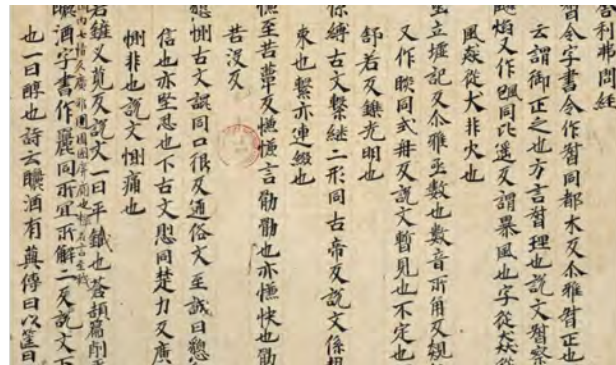 舍利弗問經
督令字書今作督同都木反尒雅督正也
云謂御正之也方言督理也說文督察
焰又作颮同比遥反謂暴風也字從猋從
風猋從犬非火也
立墟記反尒雅亟數也數音所角反
又作睒同式冉反說文暫見也不定也
舒若反鑠光明也
係縛古文繫継二形同古帝反說文係
束也繫亦連綴也
至苦葷反言勖勖也亦快也勖
苦没反
惻古文誤同口很反通俗文至誠曰
信也亦堅忍也下古文同楚力反廣
惻非也說文惻痛也
若鏟叉莧反說文一曰平鐵也蒼頡篇削
曬酒字書作釃同所宜所解二反說文下
也一曰醇也詩云曬酒有藇傳曰以筐曰